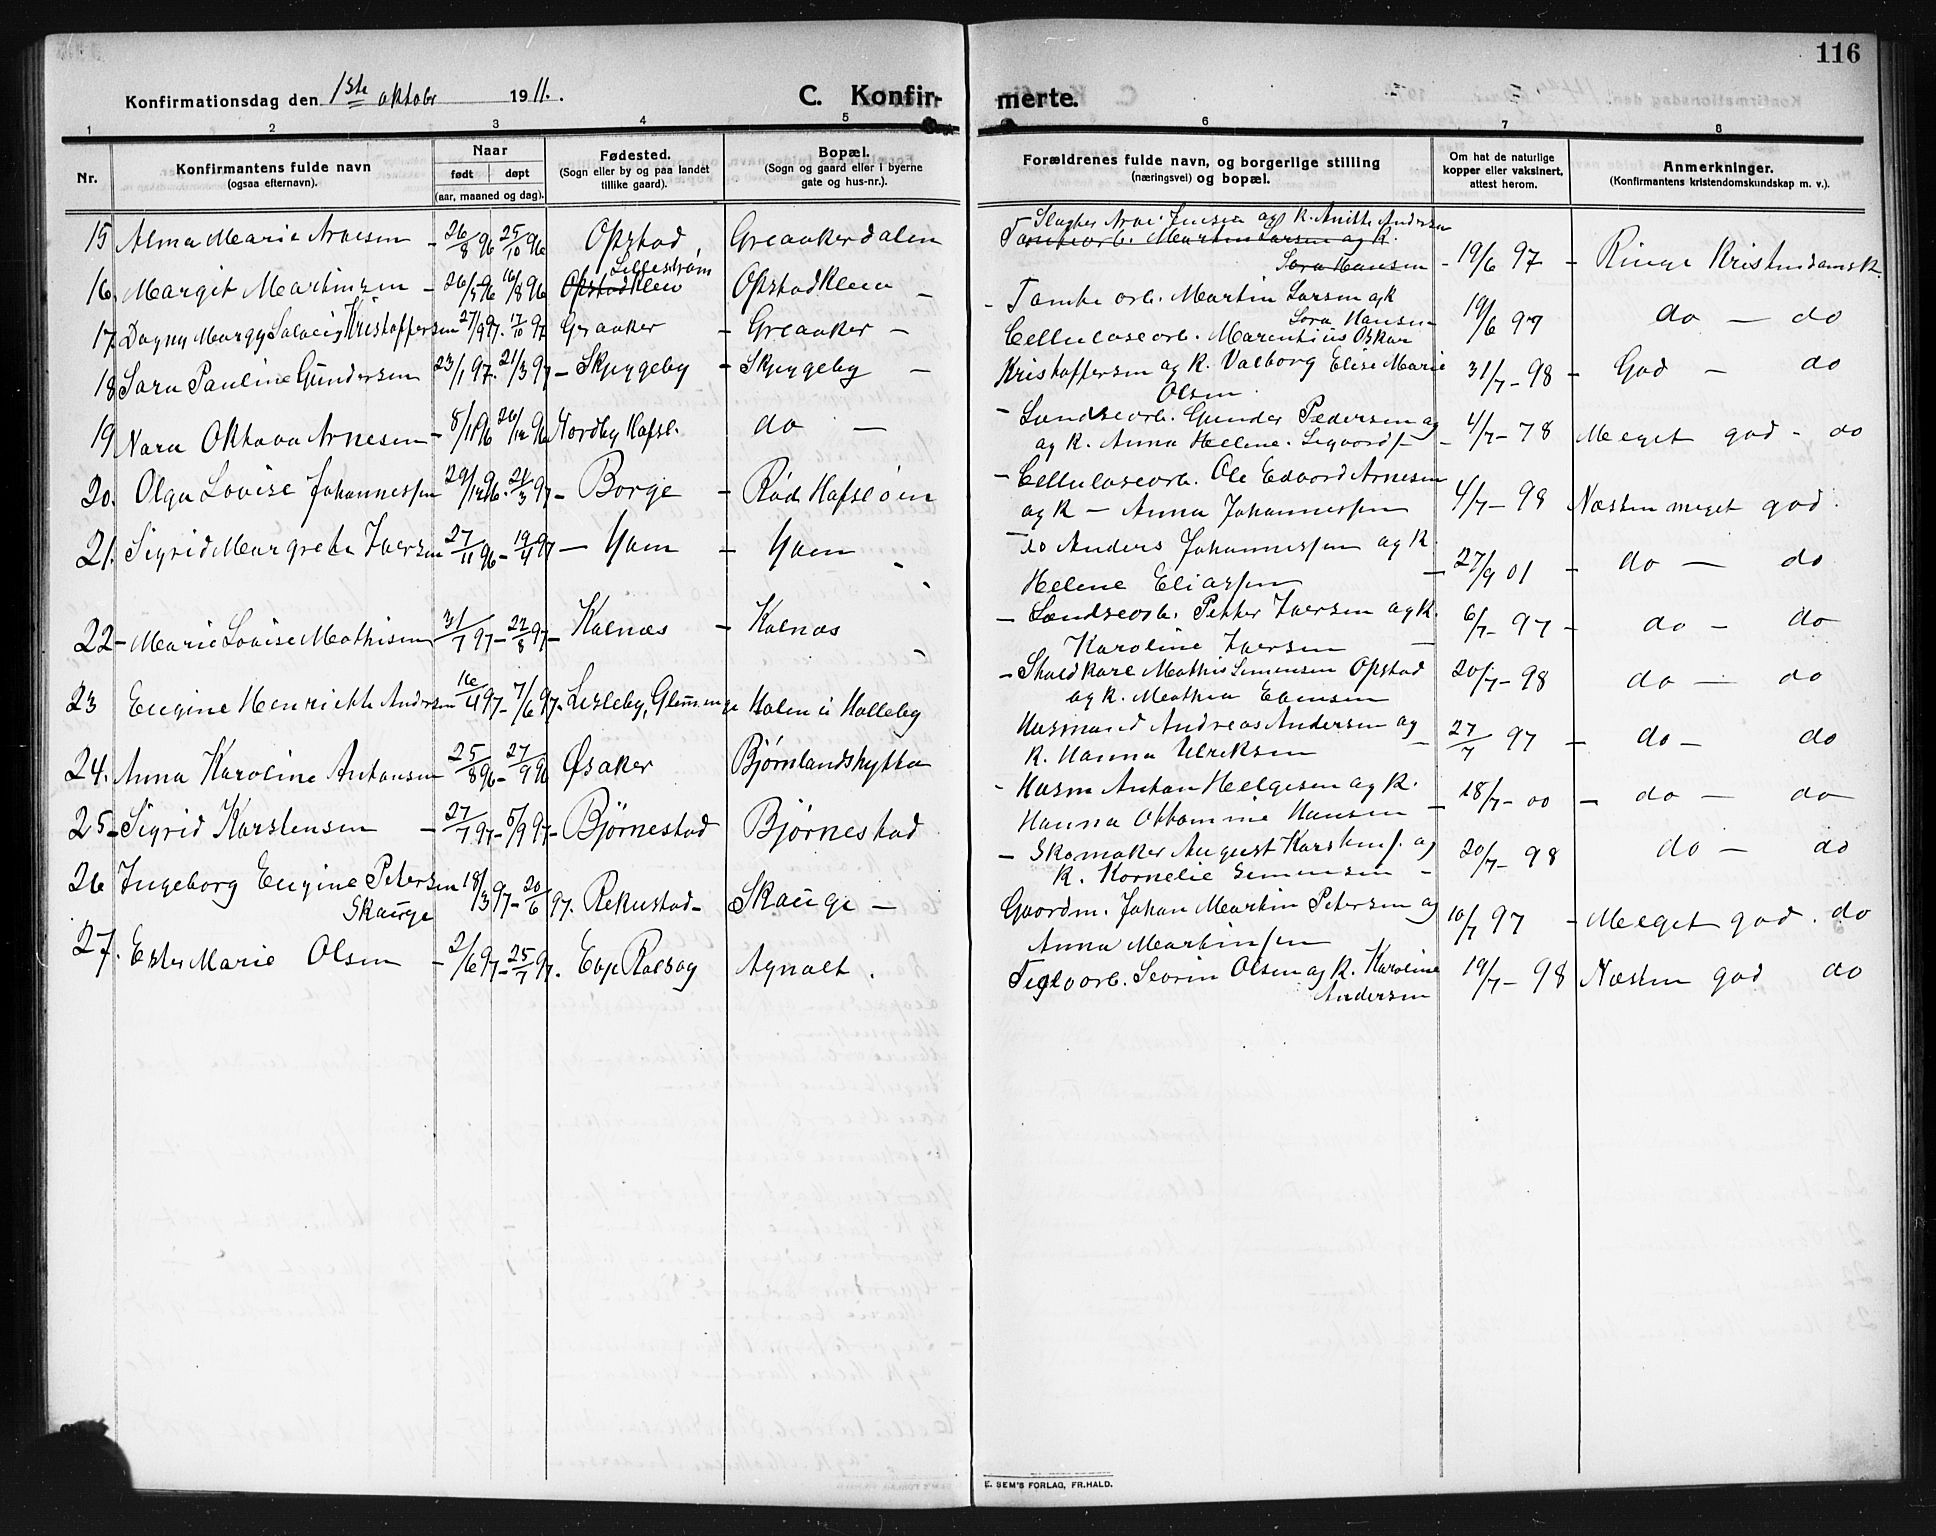 116
Konfirmationsdag den 1ste oktober 1911.
C. Konfirmerte.
1 2 3 4 5 6 7 8
Nr.
Konfirmantens fulde navn
(ogsaa efternavn).
Naar
født døpt
(aar, maaned og dag).
Fødested.
(Sogn eller by og paa landet
tillike gaard).
Bopæl.
(Sogn og gaard eller i byerne
gate og hus-nr.).
Forældrenes fulde navn, og borgerlige stilling
(næringsvei) og bopæl.
Om hat de naturlige
kopper eller vaksinert,
attest herom.
Anmerkninger.
(Konfirmantens kristendomskundskap m. v.).
15 Alma Marie Arnesen – 26/8 96 25/10 96 Opstad, Greaakerdalen
Slagter Arne Jensen og k. Anitte Andersen
Tomteorb. Martin Larsen og k.
Sara Hansen – 19/6 97 – Ringe Kristendomsk.
16. Margit Martinsen – 26/5 96 16/8 96 Opstadkleiv Lillestrøm Opstadkleiv –
– Tomte orb. Martin Larsen og k
Sara Hansen – 19/6 97 do – do
17. Dagny Margy Solveig Kristoffersen 27/9 97. 17/10 97 Graaker – Greaaker –
Celluloseorb. Marentius Oskar
Kristoffersen og k. Valborg Elise Marie
Olsen 31/7 – 98 – God – do
18 Sara Pauline Gundersen 23/1 97. 21/3 97 – Skjyggeby – Skjyggeby –
– Landseorb. Gunder Pedersen og
og k. Anna Helene Sigvardf – – 4/7 – 78 Meeget god – do
19 Nara Oktava Arnesen – 8/11 96 26/12 96 Nordby Hafsl. do –
– Celluloseorb. Ole Edvard Arnesen
og k – Anna Johannessen 4/7 – 98 Næsten meget god.
20. Olga Lovise Johannessen 29/12 96. 21/3 97 – Borge – Rød Hafsløen
– do Anders Johannessen og k.
Helene Eliassen – 27/9 01 – do – do
21. Sigrid Margrete Iversen 27/11 96 – 19/4 97 – Yven – Yven
– Landseorb. Petter Iversen og k.
Karoline Iversen – 6/7 – 97 – do – do
22 – Marie Lovise Mathisen 31/7 97 – 22/8 97 – Kalnæs – Kalnæs –
– Skoldkare Mathis Simensen Opstad
og k. Mathea Evensen 20/7 – 98 do – do
23 Eugine Henriette Andersen 16/4 97 – 7/6 97. Lisleby, Glemmenge Holen i Halleby
Husmand Andreas Andersen og
k. Hanna Ulriksen – 27/7 97 – do – do
24. Anna Karoline Antonsen 25/8 96 – 27/9 96 Øsaker Bjørnlandshytta
– Husm Anton Helgesen og k.
Hanna Ottomine Hansen – 18/7 – 00 – do – do
25 – Sigrid Karstensen – 27/7 97 – 5/9 97 – Bjørnestad Bjørnestad
– Skomaker August Karstensf. og
k. Kornelie Simensen – 20/7 – 98 do – do
26 Ingeborg Eugine Petersen
Skauge 18/3 97 – 20/6 97. Rekustad – Skauge –
Gaardm. Johan Martin Petersen og
Anna Martinsen 10/7 97 – Meeget god. do
27. Ester Marie Olsen – 2/6 97 – 25/7 97. Evje Rolsøy Agnalt.
Teglvorb. Severin Olsen og k. Karoline
Andersen 19/7 – 98 Næsten god do
E. SEM'S FORLAG, FR.HALD.